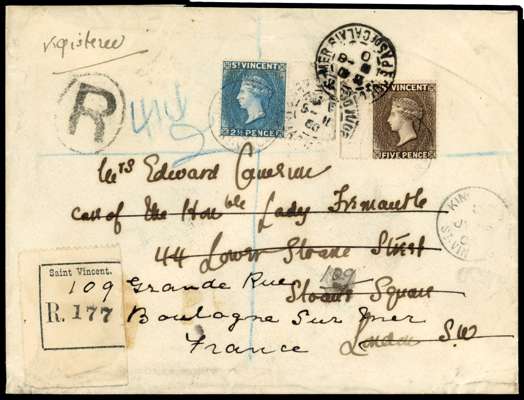 registered
R
ST VINCENT
2½ PENCE
ST VINCENT
FIVE PENCE
Mrs Edward Cameron
care of the Honble Lady Fremantle
44 Lower Sloane Street
109
Sloane Square
London S.W
Saint Vincent.
R. 177
109 Grande Rue
Boulogne Sur Mer
France